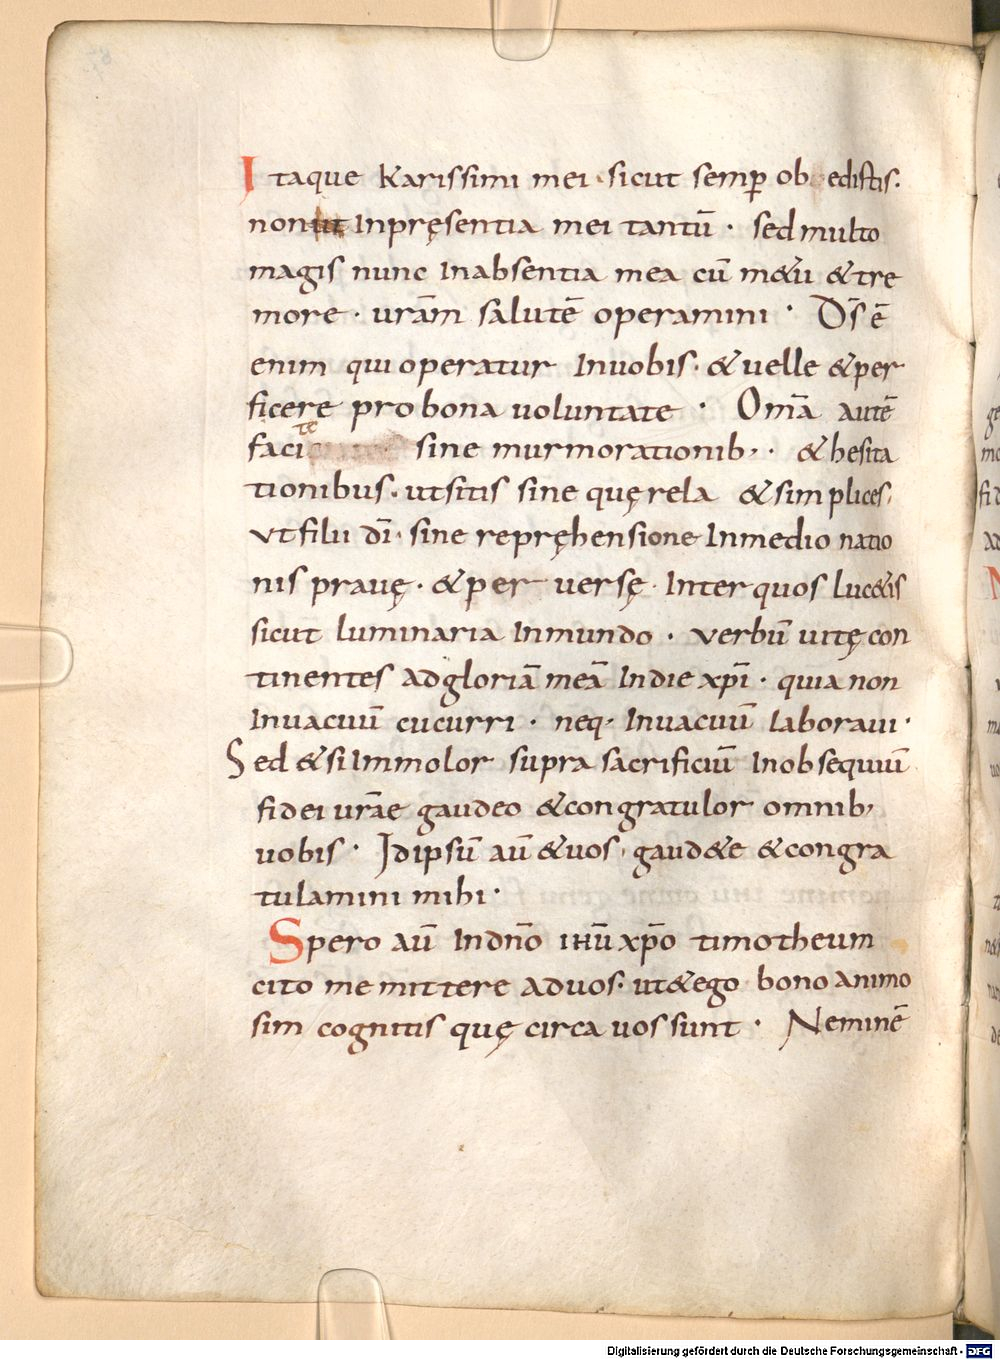 Itaque karissimi mei · sicut semp̄ ob edistis.
non ut Inpręsentia mei tantū · sed multo
magis nunc Inabsentia mea cū m&u &tre
more · urām salutē operamini · Ds̄ ē
enim qui operatur Inuobis · & uelle &per
ficere pro bona uoluntate · Omā autē
facite sine murmorationib; · & hesita
tionibus · utsitis sine quęrela &simplices,
Vtfilii dī · sine repręhensione Inmedio natio
nis pravę · &per versę · Inter quos luc&is
sicut luminaria Inmundo · verbū uitę con
tinentes adgloriā meā Indie xp̄i · quia non
Inuacuū cucurri · neq· Inuacuū laboraui ·
Sed &si Immolor supra sacrificiū Inobsequiū
fidei urāe gaudeo &congratulor omnib;
uobis · Idipsū aū &uos · gaud&e &congra
tulamini mihi ·
Spero aū Indn̄o ihū xp̄o timotheum
cito me mittere aduos · ut&ego bono animo
sim cognitis quę circa uos sunt · Neminē
Digitalisierung gefördert durch die Deutsche Forschungsgemeinschaft - DFG